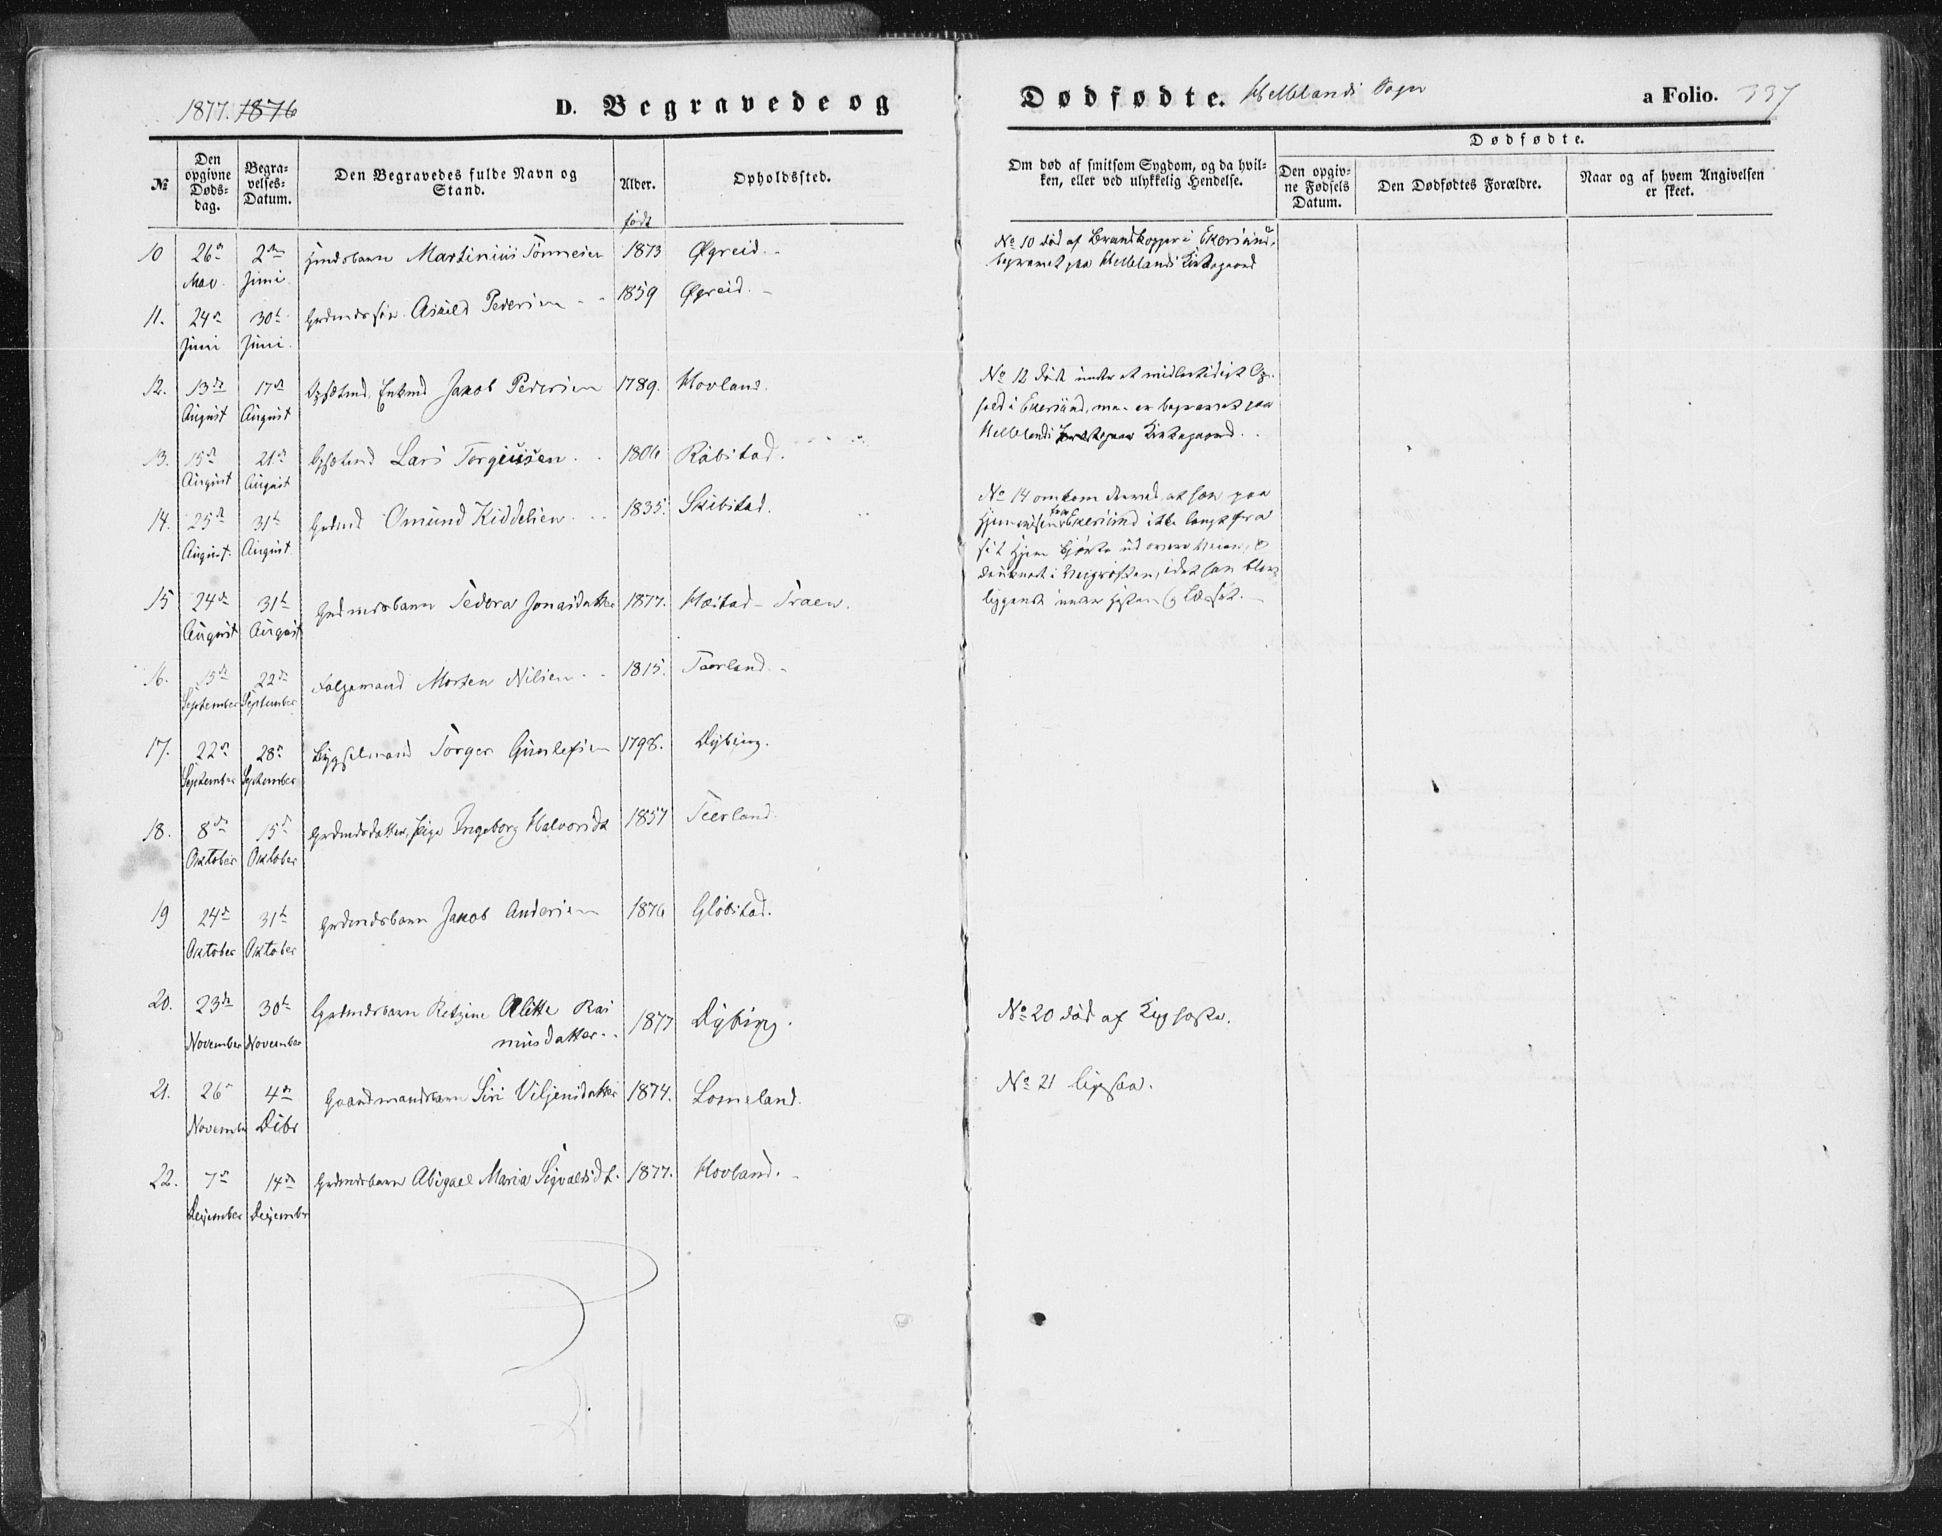 1877. 1876
D. Begravede og
Dødfødte. Hellelands Sogn
a Folio. 337
№
Den opgivne Døds-dag.
Begra-velses-Datum.
Den Begravedes fulde Navn og Stand.
Alder.
født
Opholdssted.
Om død af smitsom Sygdom, og da hvil-
ken, eller ved ulykkelig Hendelse.
Dødfødte.
Den opgiv-ne Fødsels Datum.
Den Dødfødtes Forældre.
Naar og af hvem Angivelsen er skeet.
10 26de Mai 2den Juni Martinius Tønnesen 1873 Øgreid.
No 10 død af Brandkopper i Ekersund,
begravet paa Hellelands Kirkegaard
11. 24de Juni 30te Juni Grdmdssøn Asuld Pedersen 1859 Øgreid.
12. 13de August 17de August Enkmd Jakob Pedersen 1789. Hovland.
No 12 døde under et midlertidigt Op-
hold i Ekersund, men er begravet paa
Hellelands Kirkegaard.
13. 15de August 21de August Lars Torgiusen 1806 Rabstad.
14. 25de August 31te August Grdmd Omund Kiddelsen 1835. Skibstad.
No 14 omkom derved, at han paa
Hjemreisen fra Ekersund ikke langt fra
sit Hjem kjørte ud over Veien, &
druknet i Veigrøften, idet han blev
liggende under Hesten og Læsset.
15 24de August 31te August Grdmdsbarn Tedora Jonasdatter 1877. Hæstad - Traen.
16. 15de September 22de September Folgemand Morten Nilsen 1815. Taerland.
17. 22de September 28de September Bygselmand Torger Gunlefsen 1798. Dybing.
18. 8de Oktober 15de Oktober Grdmdsdatter, Pige Ingeborg Halvorsdt 1857 Teerland.
19 24de Oktober 31te Oktober Grdmdsbarn Jakob Andersen 1876 Gløbstad.
20. 23de November 30te November Grdmdsbarn Retzine Alette Ras
musdatter 1877 Dybing.
No 20 død af Kighoste.
21. 26 November 4de Debr Gaardmandsbarn Siri Viljensdatter 1874. Lomeland.
No 21 ligesaa.
22. 7de Dezember 14de Dezember Grdmdsbarn Abigael Maria Sigvaldsdt. 1877. Hovland.